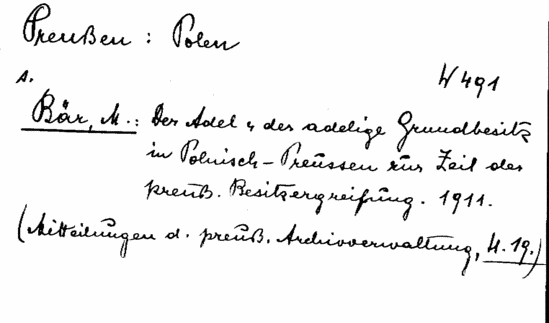 Preußen : Polen
A.
W 491
Bär, M.: Der Adel u. der adelige Grundbesitz
in Polnisch-Preussen zur Zeit der
preuß. Besitzergreifung. 1911.
(Mitteilungen d. preuß. Archivverwaltung, H. 19.)